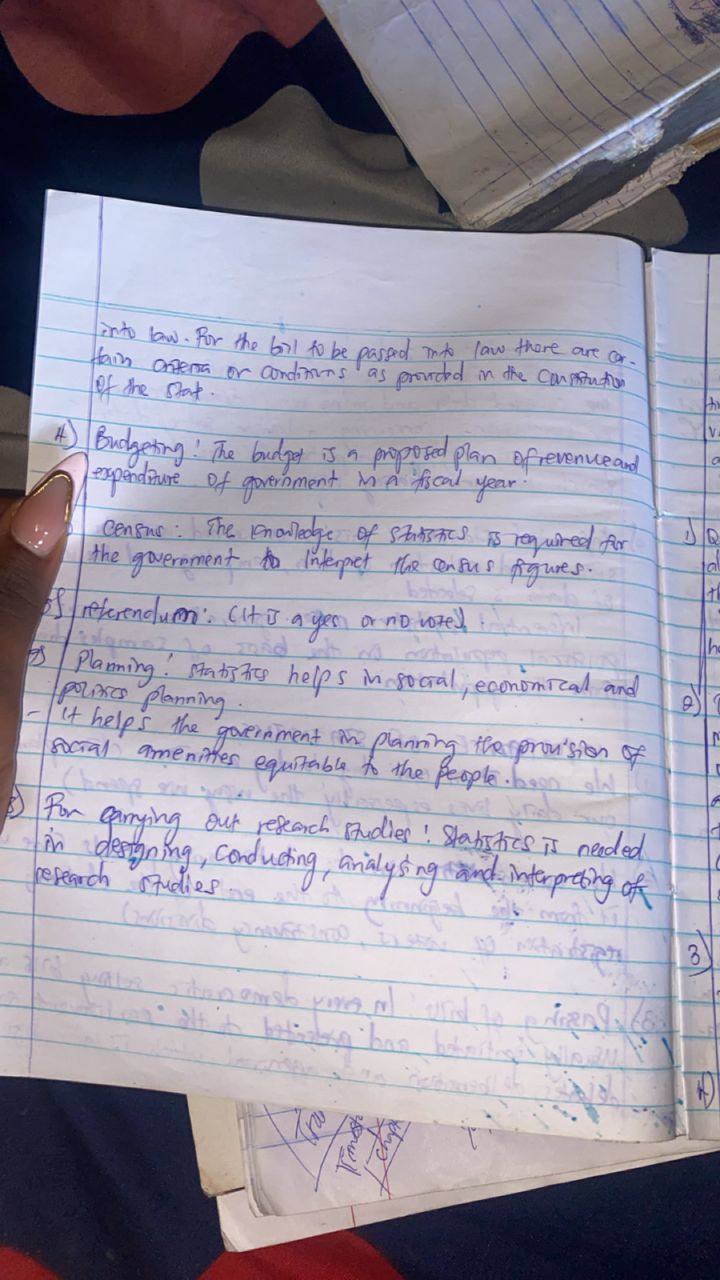 into law. For the bill to be passed into law there are cer-
tain criteria or conditions as provided in the Constitution
of the Stat.
4) Budgeting: The budget is a proposed plan of revenue and
expenditure of government in a fiscal year.
census: The knowledge of statistics is required for
the government to interpret the census figures.
referendum: (It is a yes or no vote).
7) Planning: statistics helps in social, economical and
politics planning.
- it helps the government in planning the provision of
social amenities equitable to the people.
8) For carrying out research studies: Statistics is needed
in designing, conducting, analysing and interpreting of
research studies.
1)
2)
3)
4)